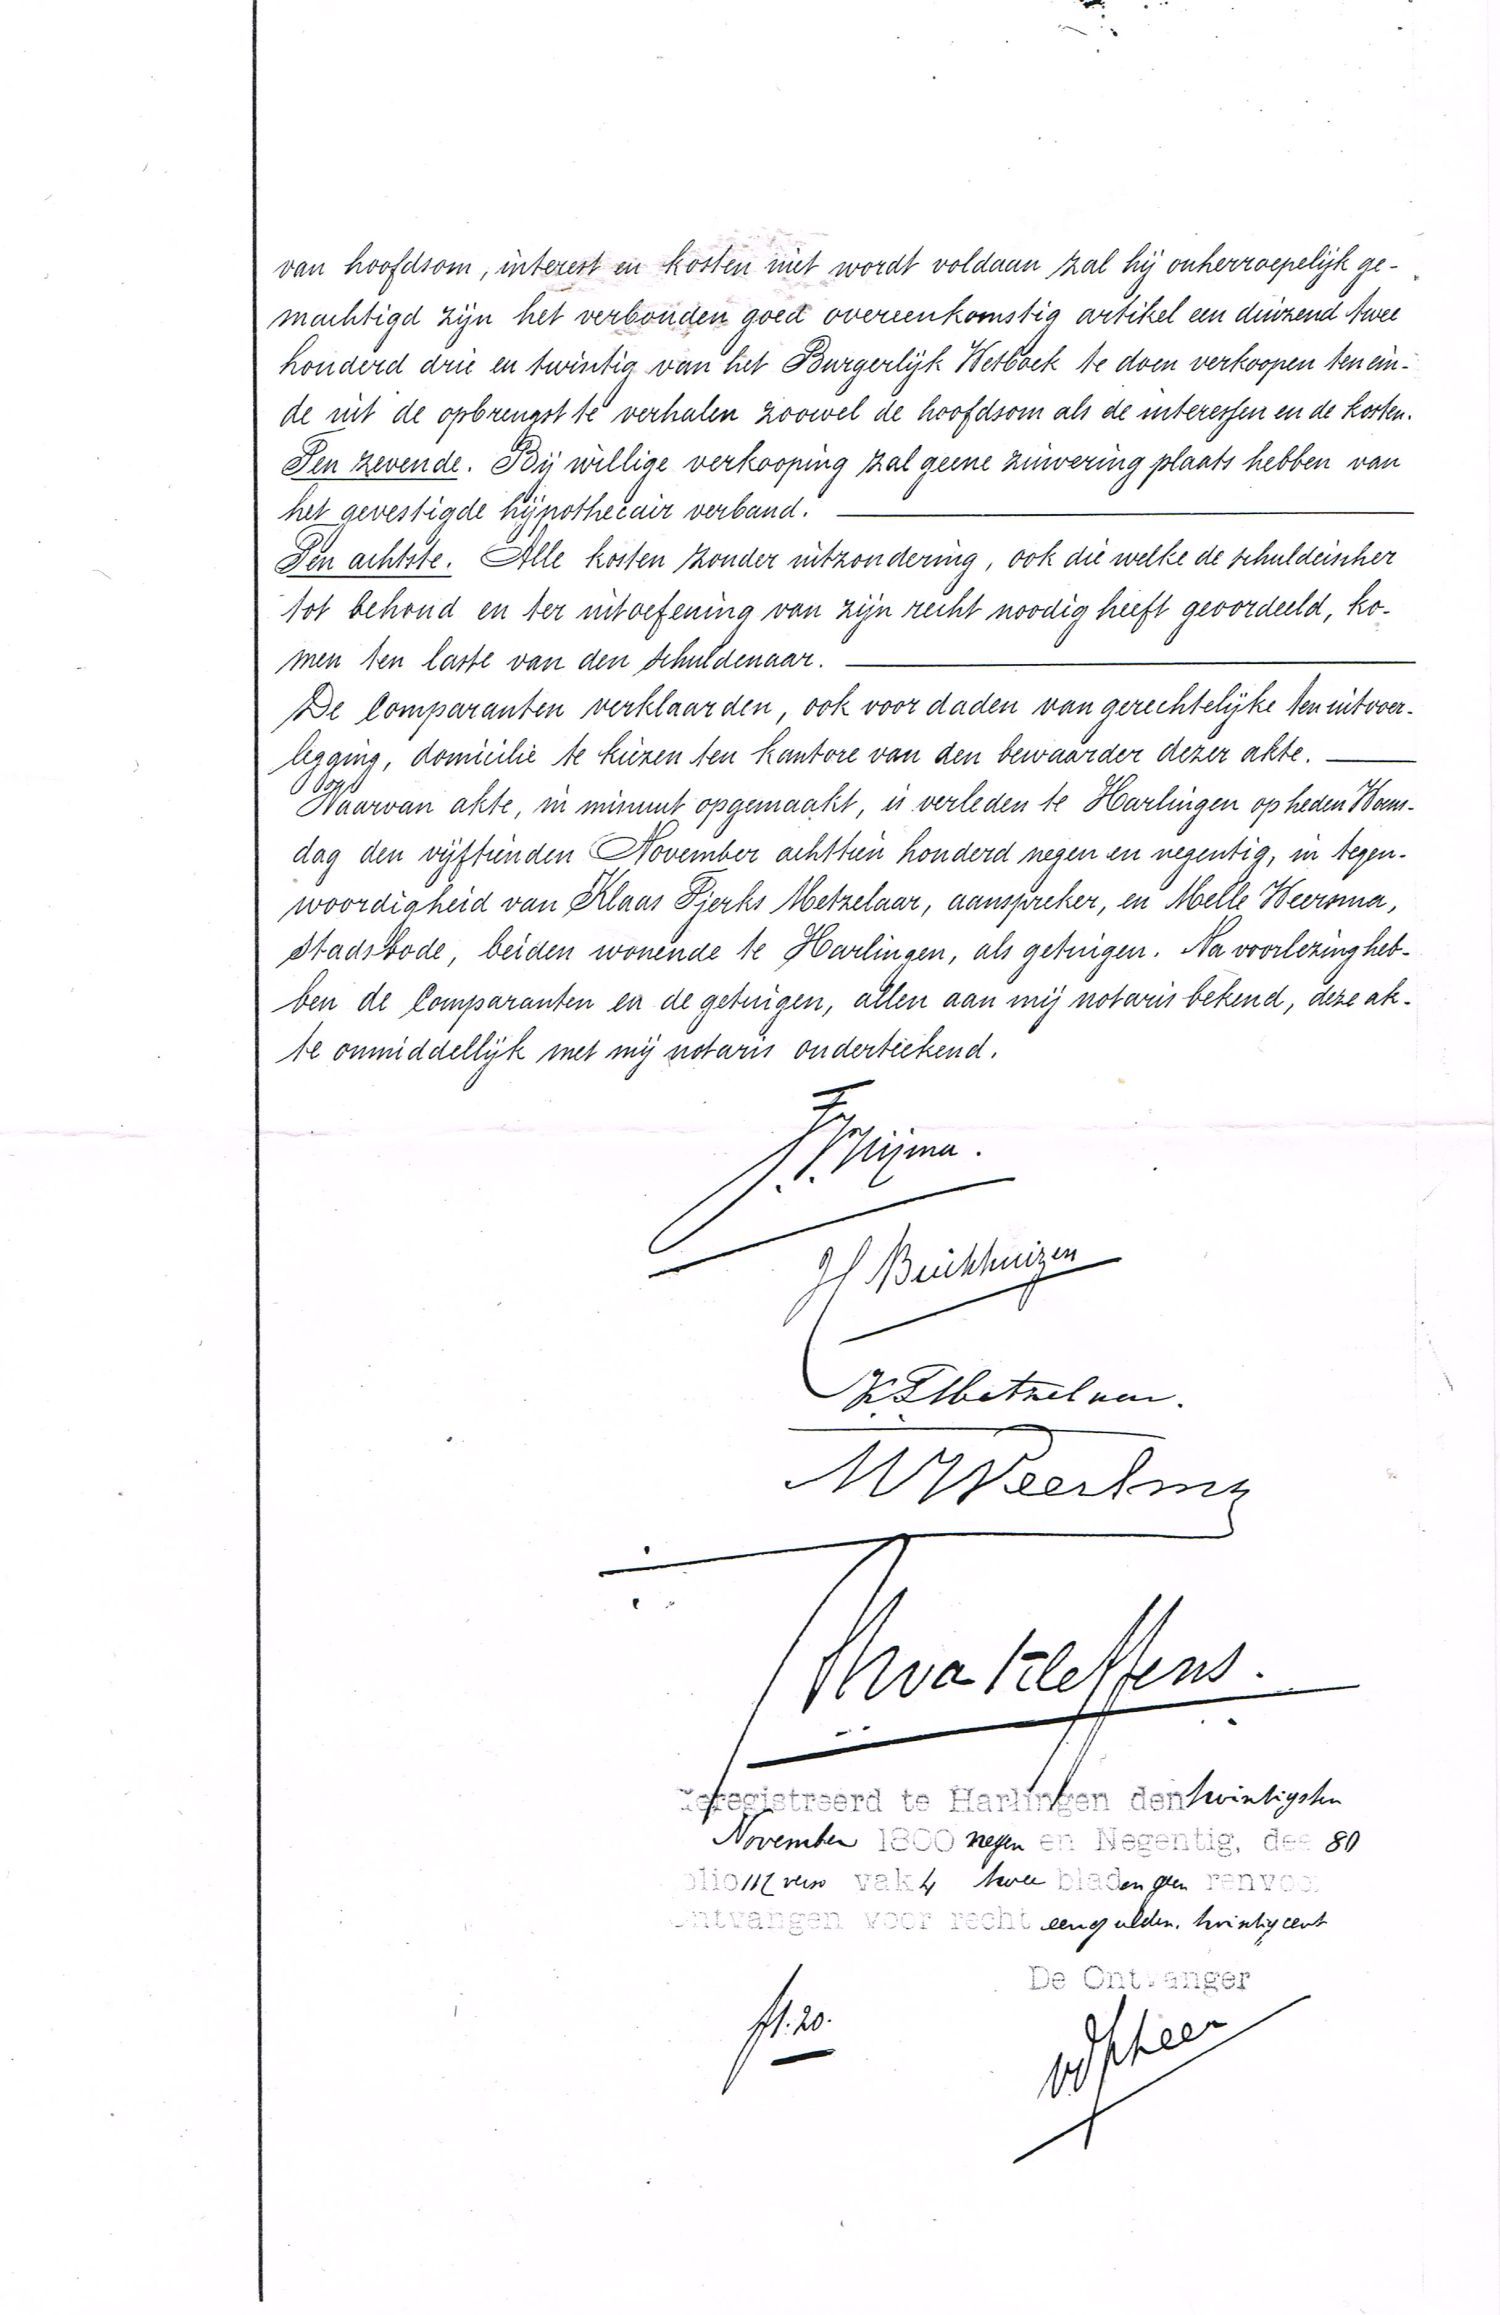 van hoofdsom, interest en kosten niet wordt voldaan zal hij onherroepelijk ge-
machtigd zijn het verbonden goed overeenkomstig artikel een duizend twee
honderd drie en twintig van het Burgerlijk Wetboek te doen verkoopen ten ein-
de uit de opbrengst te verhalen zoowel de hoofdsom als de interessen en de kosten.
Ten zevende. Bij willige verkooping zal geene zuivering plaats hebben van
het gevestigde hijpothecair verband.
Ten achtste. Alle kosten zonder uitzondering, ook die welke de schuldeischer
tot behoud en ter uitoefening van zijn recht noodig heeft geoordeeld, ko-
men ten laste van den schuldenaar.
De Comparanten verklaarden, ook voor daden van gerechtelijke ten uitvoer-
legging, domicilie te kiezen ten kantore van den bewaarder dezer akte.
Waarvan akte, in minuut opgemaakt, is verleden te Harlingen op heden Woens-
dag den vijftienden November achttien honderd negen en negentig, in tegen-
woordigheid van Klaas Tjerks Metzelaar, aanspreker, en Melle Weersma,
stadsbode, beiden wonende te Harlingen, als getuigen. Na voorlezing heb-
ben de Comparanten en de getuigen, allen aan mij notaris bekend, deze ak-
te onmiddellijk met mij notaris onderteekend.
K T Metzelaar.
M Weersma
Kleffens.
Geregistreerd te Harlingen den twintigsten
November 1800 negen en Negentig, deel 80
folio verso vak 4 twee bladen geen renvooi
Ontvangen voor recht een gulden. twintig cent
De Ontvanger
f 1.20.